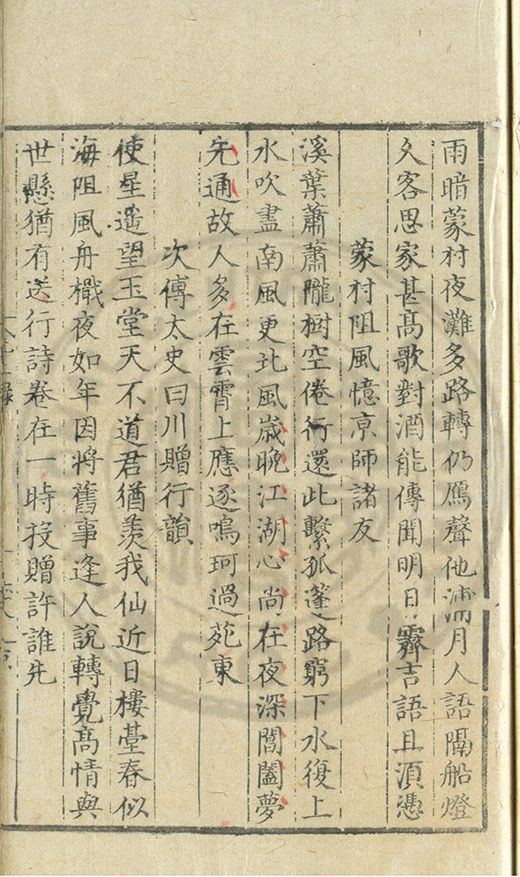 雨暗蒙村夜灘多路轉仍鴈聲他浦月人語隔船燈
久客思家甚髙歌對酒能傳聞明日霽吉語且湏憑
蒙村阻風憶亰師諸友
溪葉蕭蕭隴樹空倦行還此繫孤蓬路窮下水復上
水吹盡南風更北風歳晚江湖心尚在夜深閶闔夢
先通故人多在雲霄上應逐鳴珂過苑東
次傳太史曰川贈行韻
使星遥望玉堂天不道君猶羨我仙近日樓䑓春似
海阻風舟檥夜如年因將舊事逢人說轉覺髙情與
世懸猶有送行詩卷在一時投贈許誰先